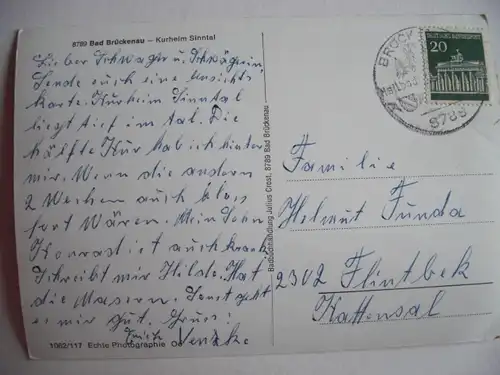 8789 Bad Brückenau – Kurheim Sinntal
Lieber Schwager u. Schwägerin,
Sende euch eine Ansichts
karte. Kurheim Sinntal
liegt tief im tal. Die
hälfte Kur hab ich hinter
mir. Wenn die andern
2 Wochen auch blos
fort wären. Mein Sohn
Konrad ist auch krank
Schreibt mir Hilde. Hat
die Masern. Sonst geht
es mir gut. Gruss:
1062/117 Echte Photographie
Badbuchhandlung Julius Crest, 8789 Bad Brückenau
BRÜCK
8789
20
Familie
Helmut Funda
2302 Flintbek
Kattensal